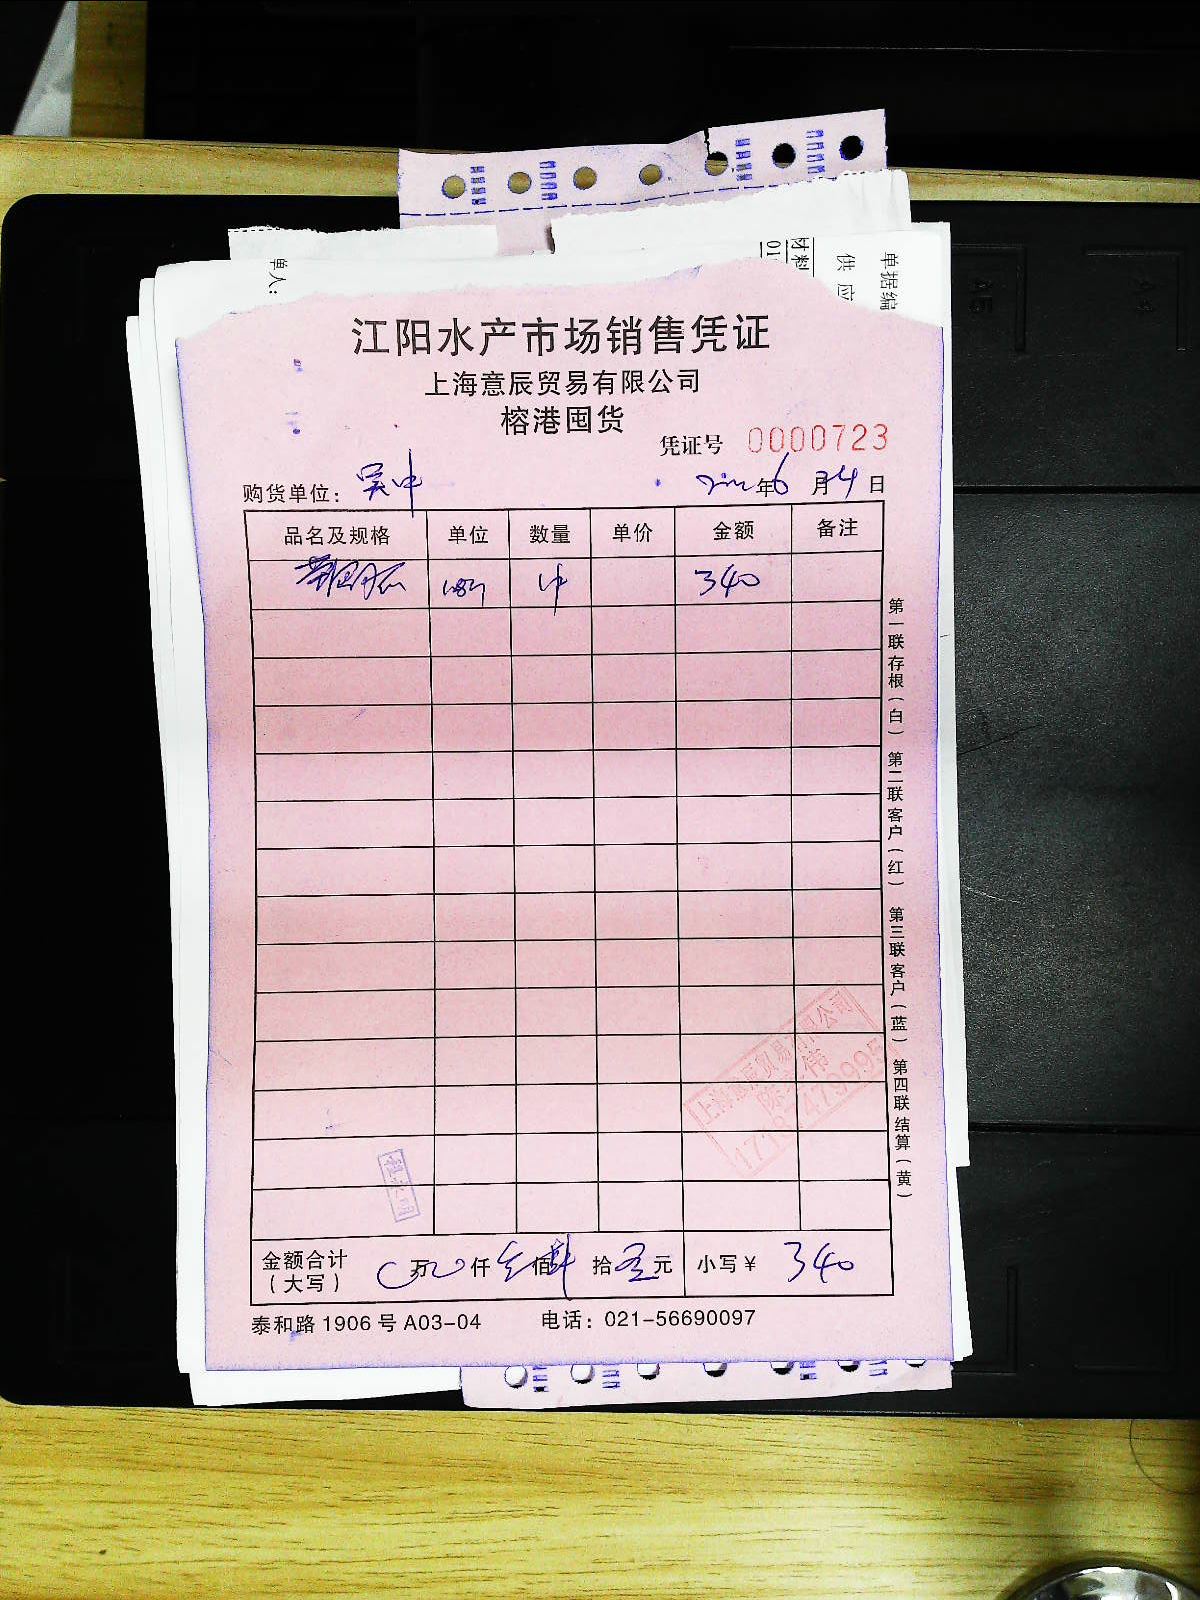 单据编
供应
材料
单人：
江阳水产市场销售凭证
上海意辰贸易有限公司
榕港囤货
凭证号 0000723
购货单位： 吴中
年6月4日
品名及规格 单位 数量 单价 金额 备注
340
第一联存根（白） 第二联客户（红） 第三联客户（蓝） 第四联结算（黄）
上海意辰贸易有限公司
金额合计 万 仟 佰 拾 元 小写￥ 340
（大写）
泰和路1906号A03-04 电话：021-56690097